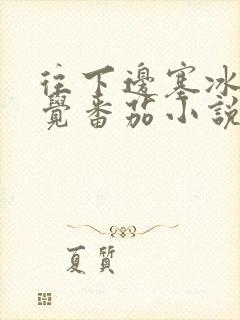 往下邊塞冰
覺番茄小說
夏質